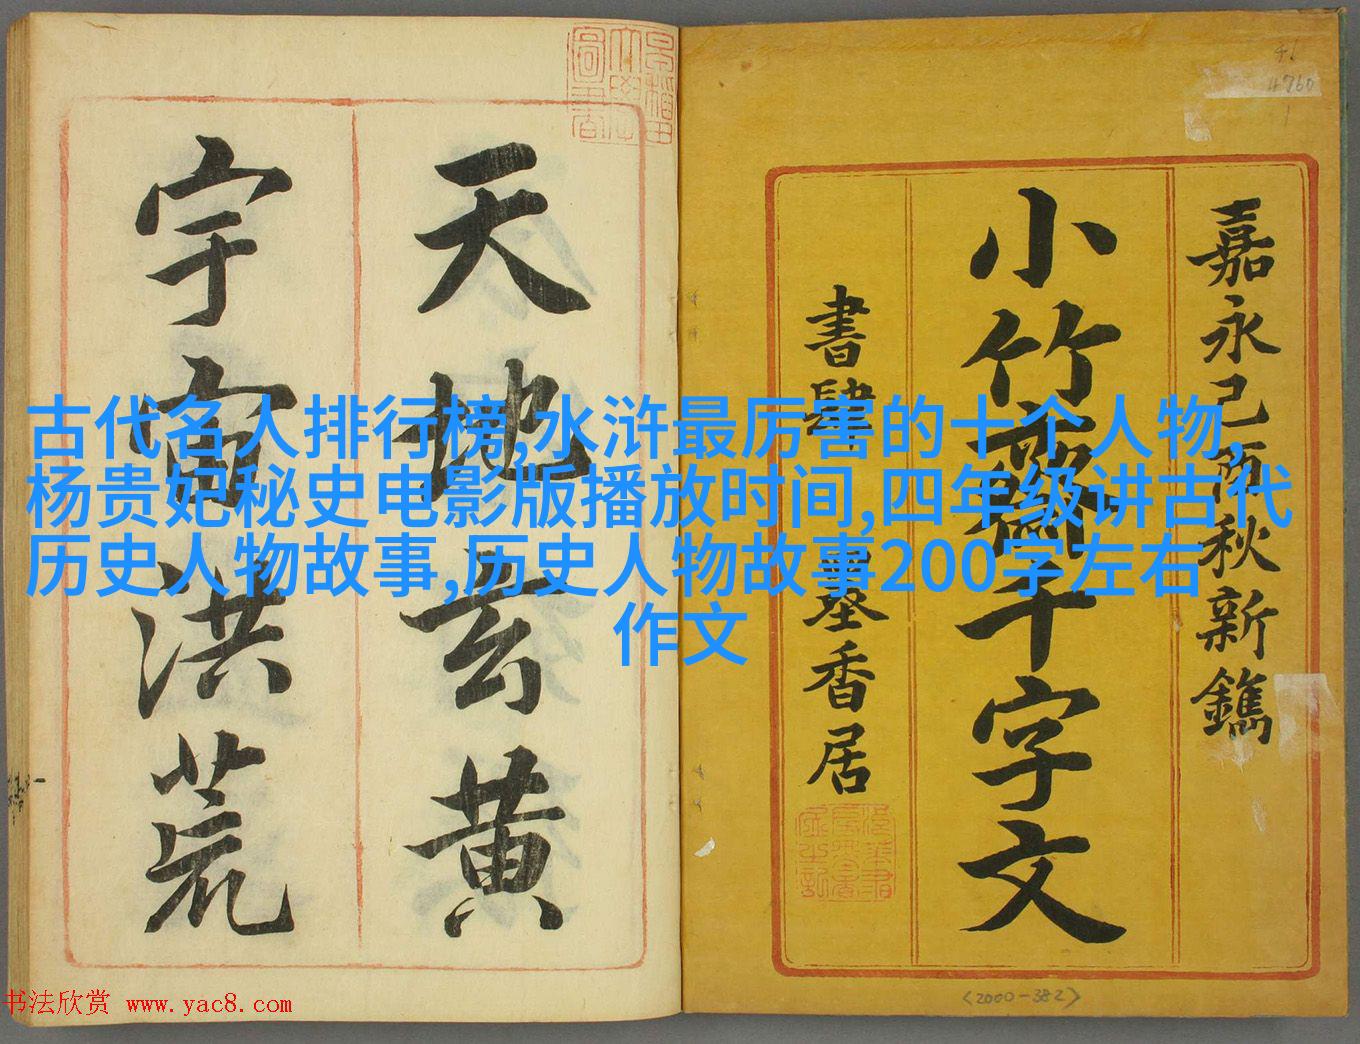 嘉永己酉秋新鐫
小竹齋千字文
書肆 墨香居
天地玄黄
宇宙洪荒
古代名人排行榜,水浒最厉害的十个人物,
杨贵妃秘史电影版播放时间,四年级讲古代
历史人物故事,历史人物故事200字左右
作文
46
4760
<2000-382>
书法欣赏 www.yac8.com